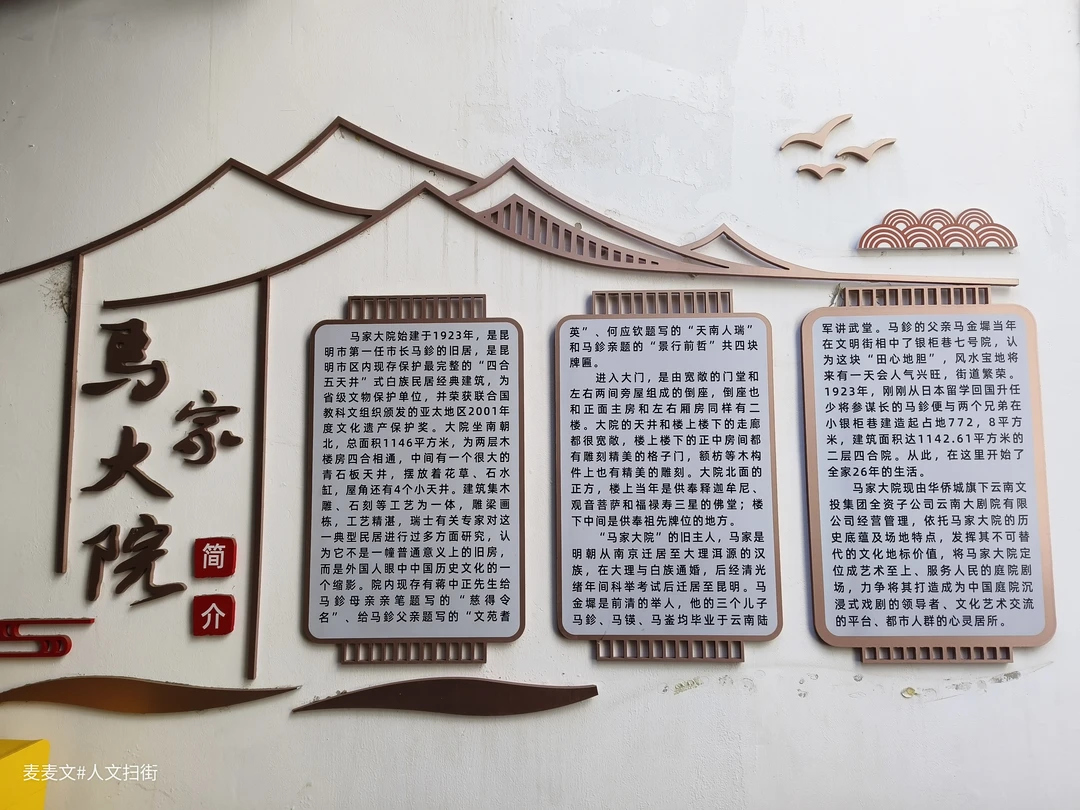 马家大院
简介
马家大院始建于1923年，是昆
明市第一任市长马鉁的旧居，是昆
明市区内现存保护最完整的“四合
五天井”式白族民居经典建筑，为
省级文物保护单位，并荣获联合国
教科文组织颁发的亚太地区2001年
度文化遗产保护奖。大院坐南朝
北，总面积1146平方米，为两层木
楼房四合相通，中间有一个很大的
青石板天井，摆放着花草、石水
缸，屋角还有4个小天井。建筑集木
雕、石刻等工艺为一体，雕梁画
栋，工艺精湛，瑞士有关专家对这
一典型民居进行过多方面研究，认
为它不是一幢普通意义上的旧房，
而是外国人眼中中国历史文化的一
个缩影。院内现存有蒋中正先生给
马鉁母亲亲笔题写的“慈得令
名”、给马鉁父亲题写的“文苑耆
英”、何应钦题写的“天南人瑞”
和马鉁亲题的“景行前哲”共四块
牌匾。
进入大门，是由宽敞的门堂和
左右两间旁屋组成的倒座，倒座也
和正面主房和左右厢房同样有二
楼。大院的天井和楼上楼下的走廊
都很宽敞，楼上楼下的正中房间都
有雕刻精美的格子门，额枋等木构
件上也有精美的雕刻。大院北面的
正方，楼上当年是供奉释迦牟尼、
观音菩萨和福禄寿三星的佛堂；楼
下中间是供奉祖先牌位的地方。
“马家大院”的旧主人，马家是
明朝从南京迁居至大理洱源的汉
族，在大理与白族通婚，后经清光
绪年间科举考试后迁居至昆明。马
金墀是前清的举人，他的三个儿子
马鉁、马锳、马崟均毕业于云南陆
军讲武堂。马鉁的父亲马金墀当年
在文明街相中了银柜巷七号院，认
为这块“田心地胆”，风水宝地将
来有一天会人气兴旺，街道繁荣。
1923年，刚刚从日本留学回国升任
少将参谋长的马鉁便与两个兄弟在
小银柜巷建造起占地772，8平方
米，建筑面积达1142.61平方米的
二层四合院。从此，在这里开始了
全家26年的生活。
马家大院现由华侨城旗下云南文
投集团全资子公司云南大剧院有限
公司经营管理，依托马家大院的历
史底蕴及场地特点，发挥其不可替
代的文化地标价值，将马家大院定
位成艺术至上、服务人民的庭院剧
场，力争将其打造成为中国庭院沉
浸式戏剧的领导者、文化艺术交流
的平台、都市人群的心灵居所。
麦麦文#人文扫街